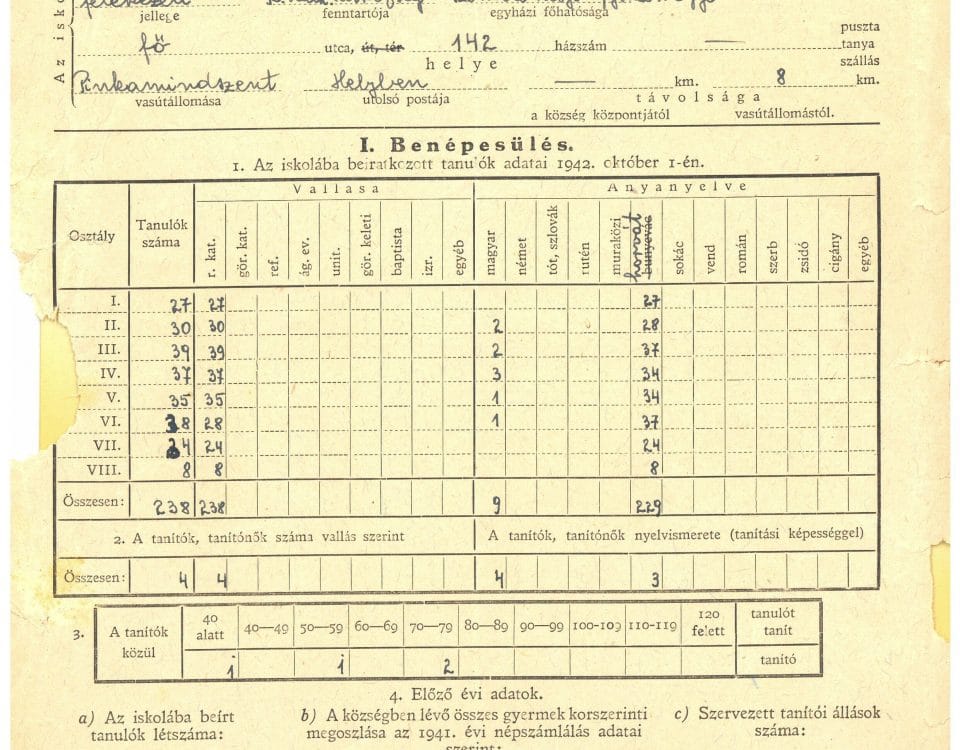 jellege fenntartója egyházi főhatósága
Az isko
fő utca, út, tér 142 házszám — puszta tanya szállás
helye
Pinkamindszent Helyben — km. 8 km.
vasútállomása utolsó postája távolsága
a község központjától vasútállomástól.
I. Benépesülés.
1. Az iskolába beiratkozott tanulók adatai 1942. október 1-én.
Osztály Tanulók száma Vallása Anyanyelve
r. kat. gör. kat. ref. ág. ev. unit. gör. keleti baptista izr. egyéb magyar német tót, szlovák rutén muraközi bunyevác horvát sokác vend román szerb zsidó cigány egyéb
I. 27 27 27
II. 30 30 2 28
III. 39 39 2 37
IV. 37 37 3 34
V. 35 35 1 34
VI. 38 28 1 37
VII. 24 24 24
VIII. 8 8 8
Összesen: 238 238 9 229
2. A tanítók, tanítónők száma vallás szerint A tanítók, tanítónők nyelvismerete (tanítási képességgel)
Összesen: 4 4 4 3
3. A tanítók közül 40 alatt 40—49 50—59 60—69 70—79 80—89 90—99 100-109 110-119 120 felett tanulót tanít
1 1 2 tanító
4. Előző évi adatok.
a) Az iskolába beírt tanulók létszáma: b) A községben lévő összes gyermek korszerinti megoszlása az 1941. évi népszámlálás adatai szerint: c) Szervezett tanítói állások száma: